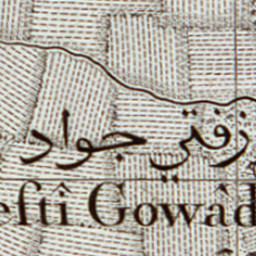 زفتي جواد
efti Gowâd